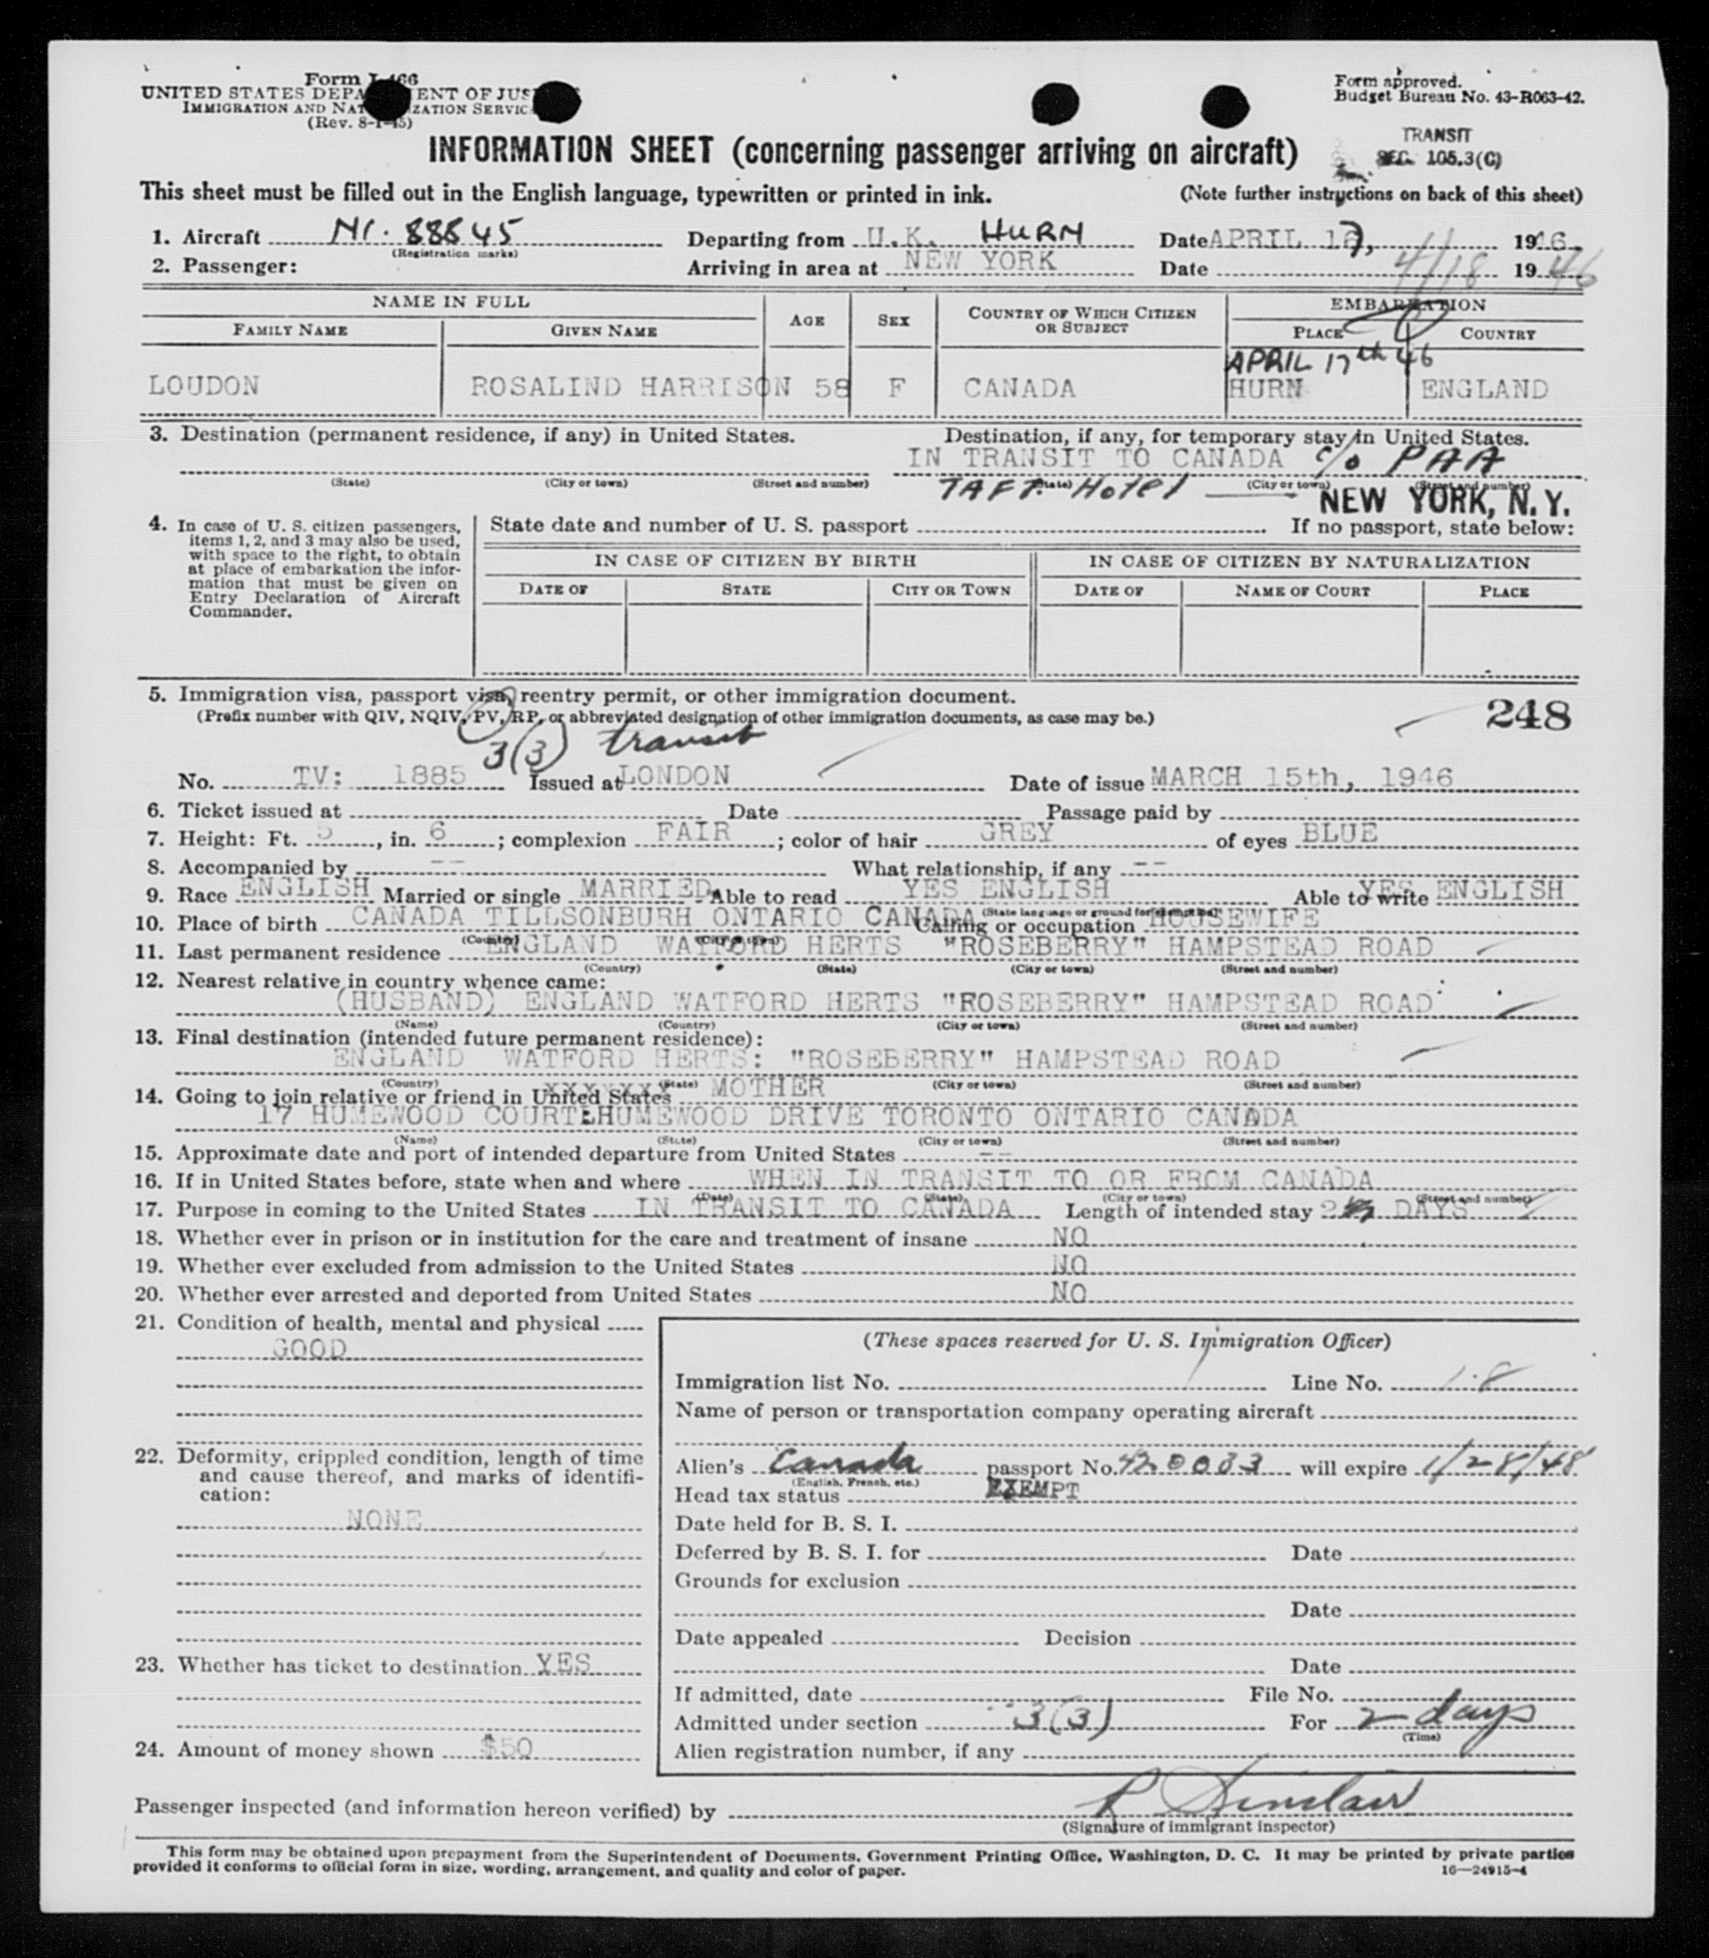 Form I-466
UNITED STATES DEPARTMENT OF JUSTICE
IMMIGRATION AND NATURALIZATION SERVICE
(Rev. 8-1-45)
Form approved.
Budget Bureau No. 43-R063-42.
TRANSIT
SEC. 105.3(C)
INFORMATION SHEET (concerning passenger arriving on aircraft)
This sheet must be filled out in the English language, typewritten or printed in ink. (Note further instructions on back of this sheet)
1. Aircraft Nr. 88845 Departing from U.K. HURN Date APRIL 17, 1946
(Registration marks)
2. Passenger: Arriving in area at NEW YORK Date 4/18 1946
NAME IN FULL AGE SEX COUNTRY OF WHICH CITIZEN OR SUBJECT EMBARKATION
FAMILY NAME GIVEN NAME PLACE COUNTRY
APRIL 17th 46
LOUDON ROSALIND HARRISON 58 F CANADA HURN ENGLAND
3. Destination (permanent residence, if any) in United States. Destination, if any, for temporary stay in United States.
IN TRANSIT TO CANADA c/o PAA
(State) (City or town) (Street and number) (State) (City or town) (Street and number)
TAFT Hotel NEW YORK, N.Y.
4. In case of U. S. citizen passengers, items 1, 2, and 3 may also be used, with space to the right, to obtain at place of embarkation the information that must be given on Entry Declaration of Aircraft Commander.
State date and number of U. S. passport If no passport, state below:
IN CASE OF CITIZEN BY BIRTH IN CASE OF CITIZEN BY NATURALIZATION
DATE OF STATE CITY OR TOWN DATE OF NAME OF COURT PLACE
5. Immigration visa, passport visa, reentry permit, or other immigration document.
(Prefix number with QIV, NQIV, PV, RP, or abbreviated designation of other immigration documents, as case may be.) 248
3(3) transit
No. TV: 1885 Issued at LONDON Date of issue MARCH 15th, 1946
6. Ticket issued at Date Passage paid by
7. Height: Ft. 5, in. 6; complexion FAIR; color of hair GREY of eyes BLUE
8. Accompanied by -- What relationship, if any --
9. Race ENGLISH Married or single MARRIED Able to read YES ENGLISH Able to write YES ENGLISH
(State language or ground for exemption)
10. Place of birth CANADA TILLSONBURH ONTARIO CANADA Calling or occupation HOUSEWIFE
(Country) (City or town)
11. Last permanent residence ENGLAND WATFORD HERTS "ROSEBERRY" HAMPSTEAD ROAD
(Country) (State) (City or town) (Street and number)
12. Nearest relative in country whence came:
(HUSBAND) ENGLAND WATFORD HERTS "ROSEBERRY" HAMPSTEAD ROAD
(Name) (Country) (City or town) (Street and number)
13. Final destination (intended future permanent residence):
ENGLAND WATFORD HERTS: "ROSEBERRY" HAMPSTEAD ROAD
(Country) (State) (City or town) (Street and number)
14. Going to join relative or friend in United States MOTHER
17 HUMEWOOD COURT HUMEWOOD DRIVE TORONTO ONTARIO CANADA
(Name) (State) (City or town) (Street and number)
15. Approximate date and port of intended departure from United States --
16. If in United States before, state when and where WHEN IN TRANSIT TO OR FROM CANADA
(Date) (State) (City or town) (Street and number)
17. Purpose in coming to the United States IN TRANSIT TO CANADA Length of intended stay 2 DAYS
18. Whether ever in prison or in institution for the care and treatment of insane NO
19. Whether ever excluded from admission to the United States NO
20. Whether ever arrested and deported from United States NO
21. Condition of health, mental and physical
GOOD
22. Deformity, crippled condition, length of time and cause thereof, and marks of identification:
NONE
23. Whether has ticket to destination YES
24. Amount of money shown $50
(These spaces reserved for U. S. Immigration Officer)
Immigration list No. Line No. 18
Name of person or transportation company operating aircraft
Alien's Canada passport No. 420033 will expire 1/28/48
(English, French, etc.)
Head tax status EXEMPT
Date held for B. S. I.
Deferred by B. S. I. for Date
Grounds for exclusion
Date
Date appealed Decision
Date
If admitted, date File No.
Admitted under section 3(3) For 2 days
(Time)
Alien registration number, if any
Passenger inspected (and information hereon verified) by R Sinclair
(Signature of immigrant inspector)
This form may be obtained upon prepayment from the Superintendent of Documents, Government Printing Office, Washington, D. C. It may be printed by private parties
provided it conforms to official form in size, wording, arrangement, and quality and color of paper. 16—24915-4